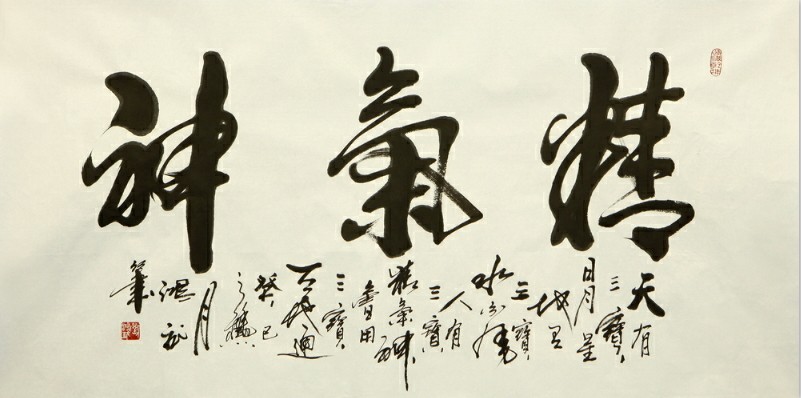 精氣神
天有
三寶
日月星
地有
三寶
水火風
人有
三寶
精氣神
用
三寶
天地通
癸巳
之龝
月
筆